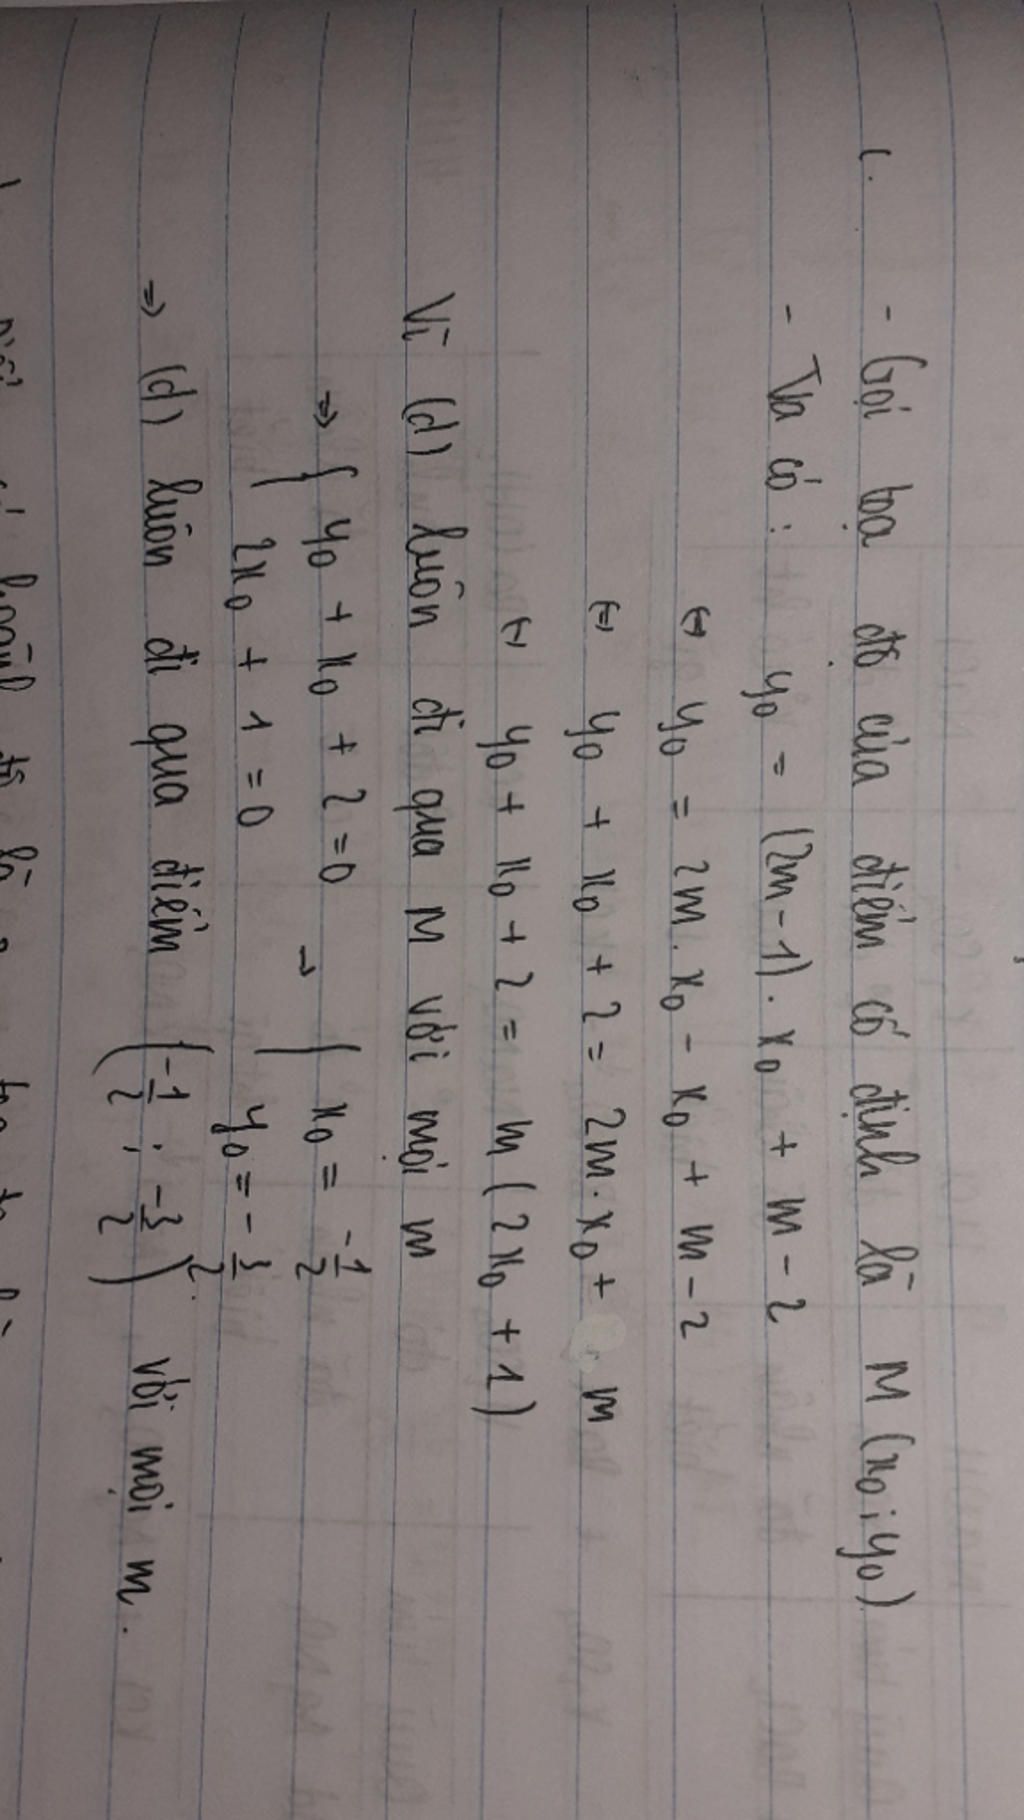 c. - Gọi toạ độ của điểm cố định là M (x₀; y₀)
- Ta có: y₀ = (2m - 1). x₀ + m - 2
⇔ y₀ = 2m. x₀ - x₀ + m - 2
⇔ y₀ + x₀ + 2 = 2m. x₀ + m
⇔ y₀ + x₀ + 2 = m (2x₀ + 1)
Vì (d) luôn đi qua M với mọi m
⇒ { y₀ + x₀ + 2 = 0 → { x₀ = -1/2
2x₀ + 1 = 0 y₀ = -3/2
⇒ (d) luôn đi qua điểm (-1/2 ; -3/2) với mọi m.